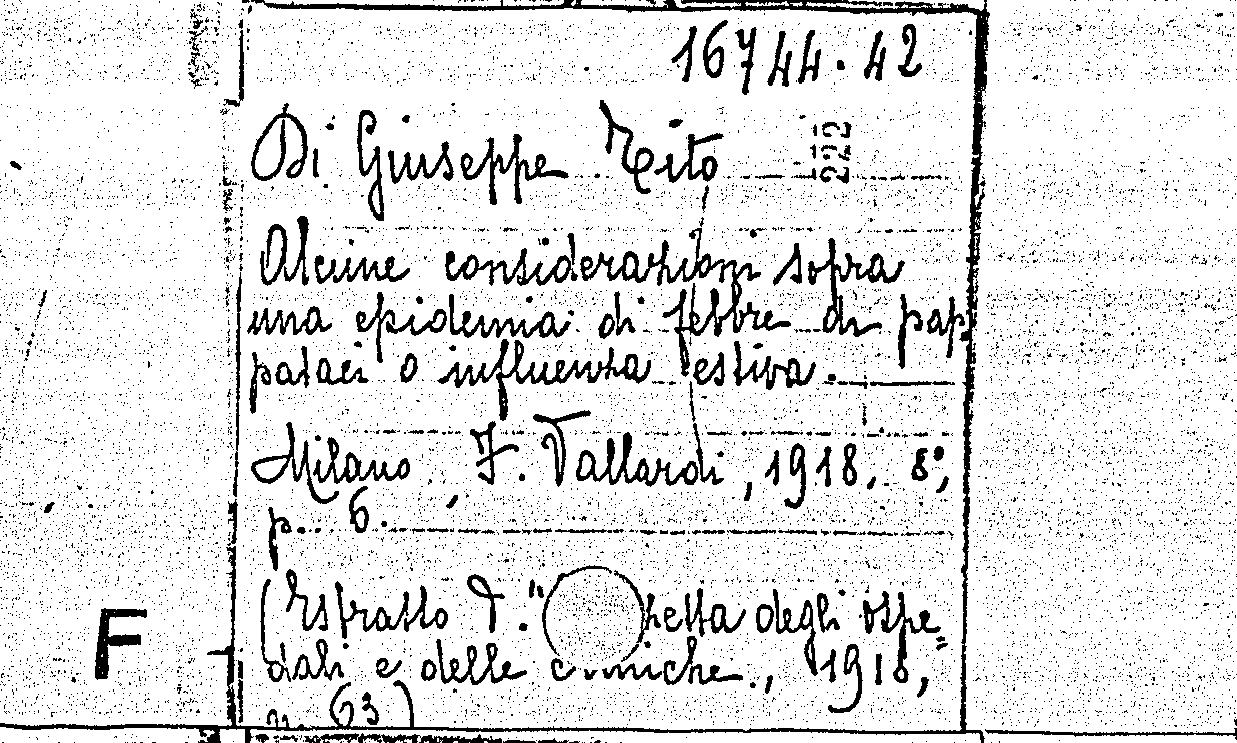 16744.42
222
Di Giuseppe Tito
Alcune considerazioni sopra
una epidemia di febbre di pap
pataci o influenza estiva.
Milano, F. Vallardi, 1918. 8°,
p. 6.
(Estratto d. " zetta degli ospe=
dali e delle cliniche., 1918,
n. 63)
F